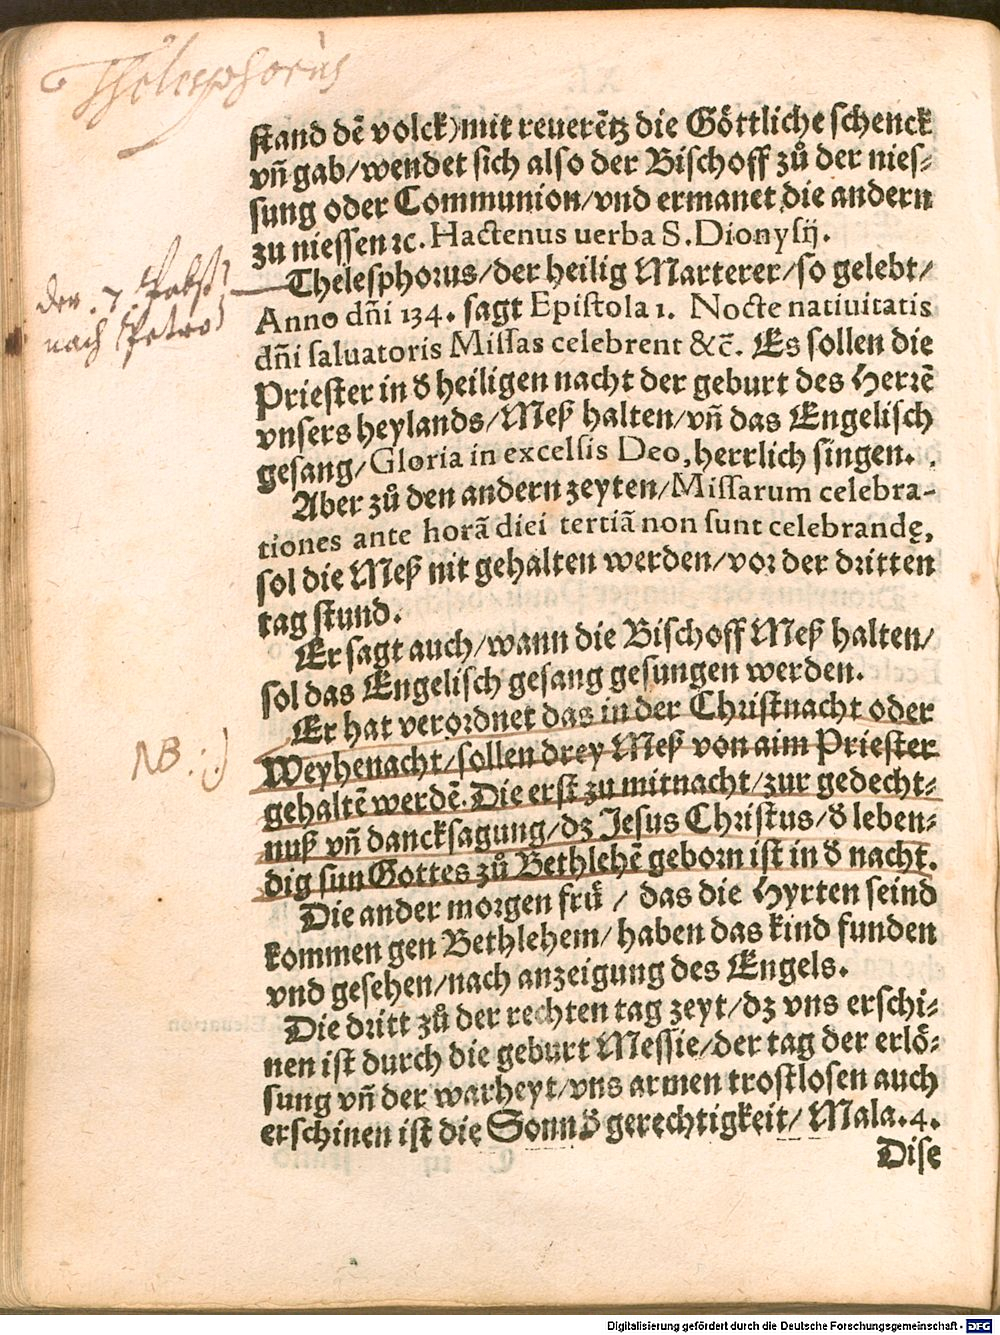 Thelesphorus
stand dẽ volck) mit reuerẽtz die Göttliche schenck
vñ gab/ wendet sich also der Bischoff zů der nies⸗
sung oder Communion/ vnd ermanet die andern
zu niessen ꝛc. Hactenus uerba S. Dionysij.
der .7. Pabst
nach Petro
Thelesphorus/ der heilig Marterer/ so gelebt/
Anno dñi 134. sagt Epistola 1. Nocte natiuitatis
dñi saluatoris Missas celebrent &c̃. Es sollen die
Priester in ð heiligen nacht der geburt des Herrẽ
vnsers heylands/ Meß halten/ vñ das Engelisch
gesang/ Gloria in excelsis Deo, herrlich singen.
Aber zů den andern zeyten/ Missarum celebra-
tiones ante horã diei tertiã non sunt celebrandę,
sol die Meß nit gehalten werden/ vor der dritten
tag stund.
Er sagt auch/ wann die Bischoff Meß halten/
sol das Engelisch gesang gesungen werden.
NB :)
Er hat verordnet das in der Christnacht oder
Weyhenacht/ sollen drey Meß von aim Priester
gehaltẽ werdẽ. Die erst zu mitnacht/ zur gedecht⸗
nuß vñ dancksagung/ dz Jesus Christus/ ð leben⸗
dig sun Gottes zů Bethlehẽ geborn ist in ð nacht.
Die ander morgen frů / das die Hyrten seind
kommen gen Bethlehem/ haben das kind funden
vnd gesehen/ nach anzeigung des Engels.
Die dritt zů der rechten tag zeyt/ dz vns erschi⸗
nen ist durch die geburt Messie/ der tag der erlö⸗
sung vñ der warheyt/ vns armen trostlosen auch
erschinen ist die Sonn ð gerechtigkeit/ Mala. 4.
Dise
Digitalisierung gefördert durch die Deutsche Forschungsgemeinschaft - DFG